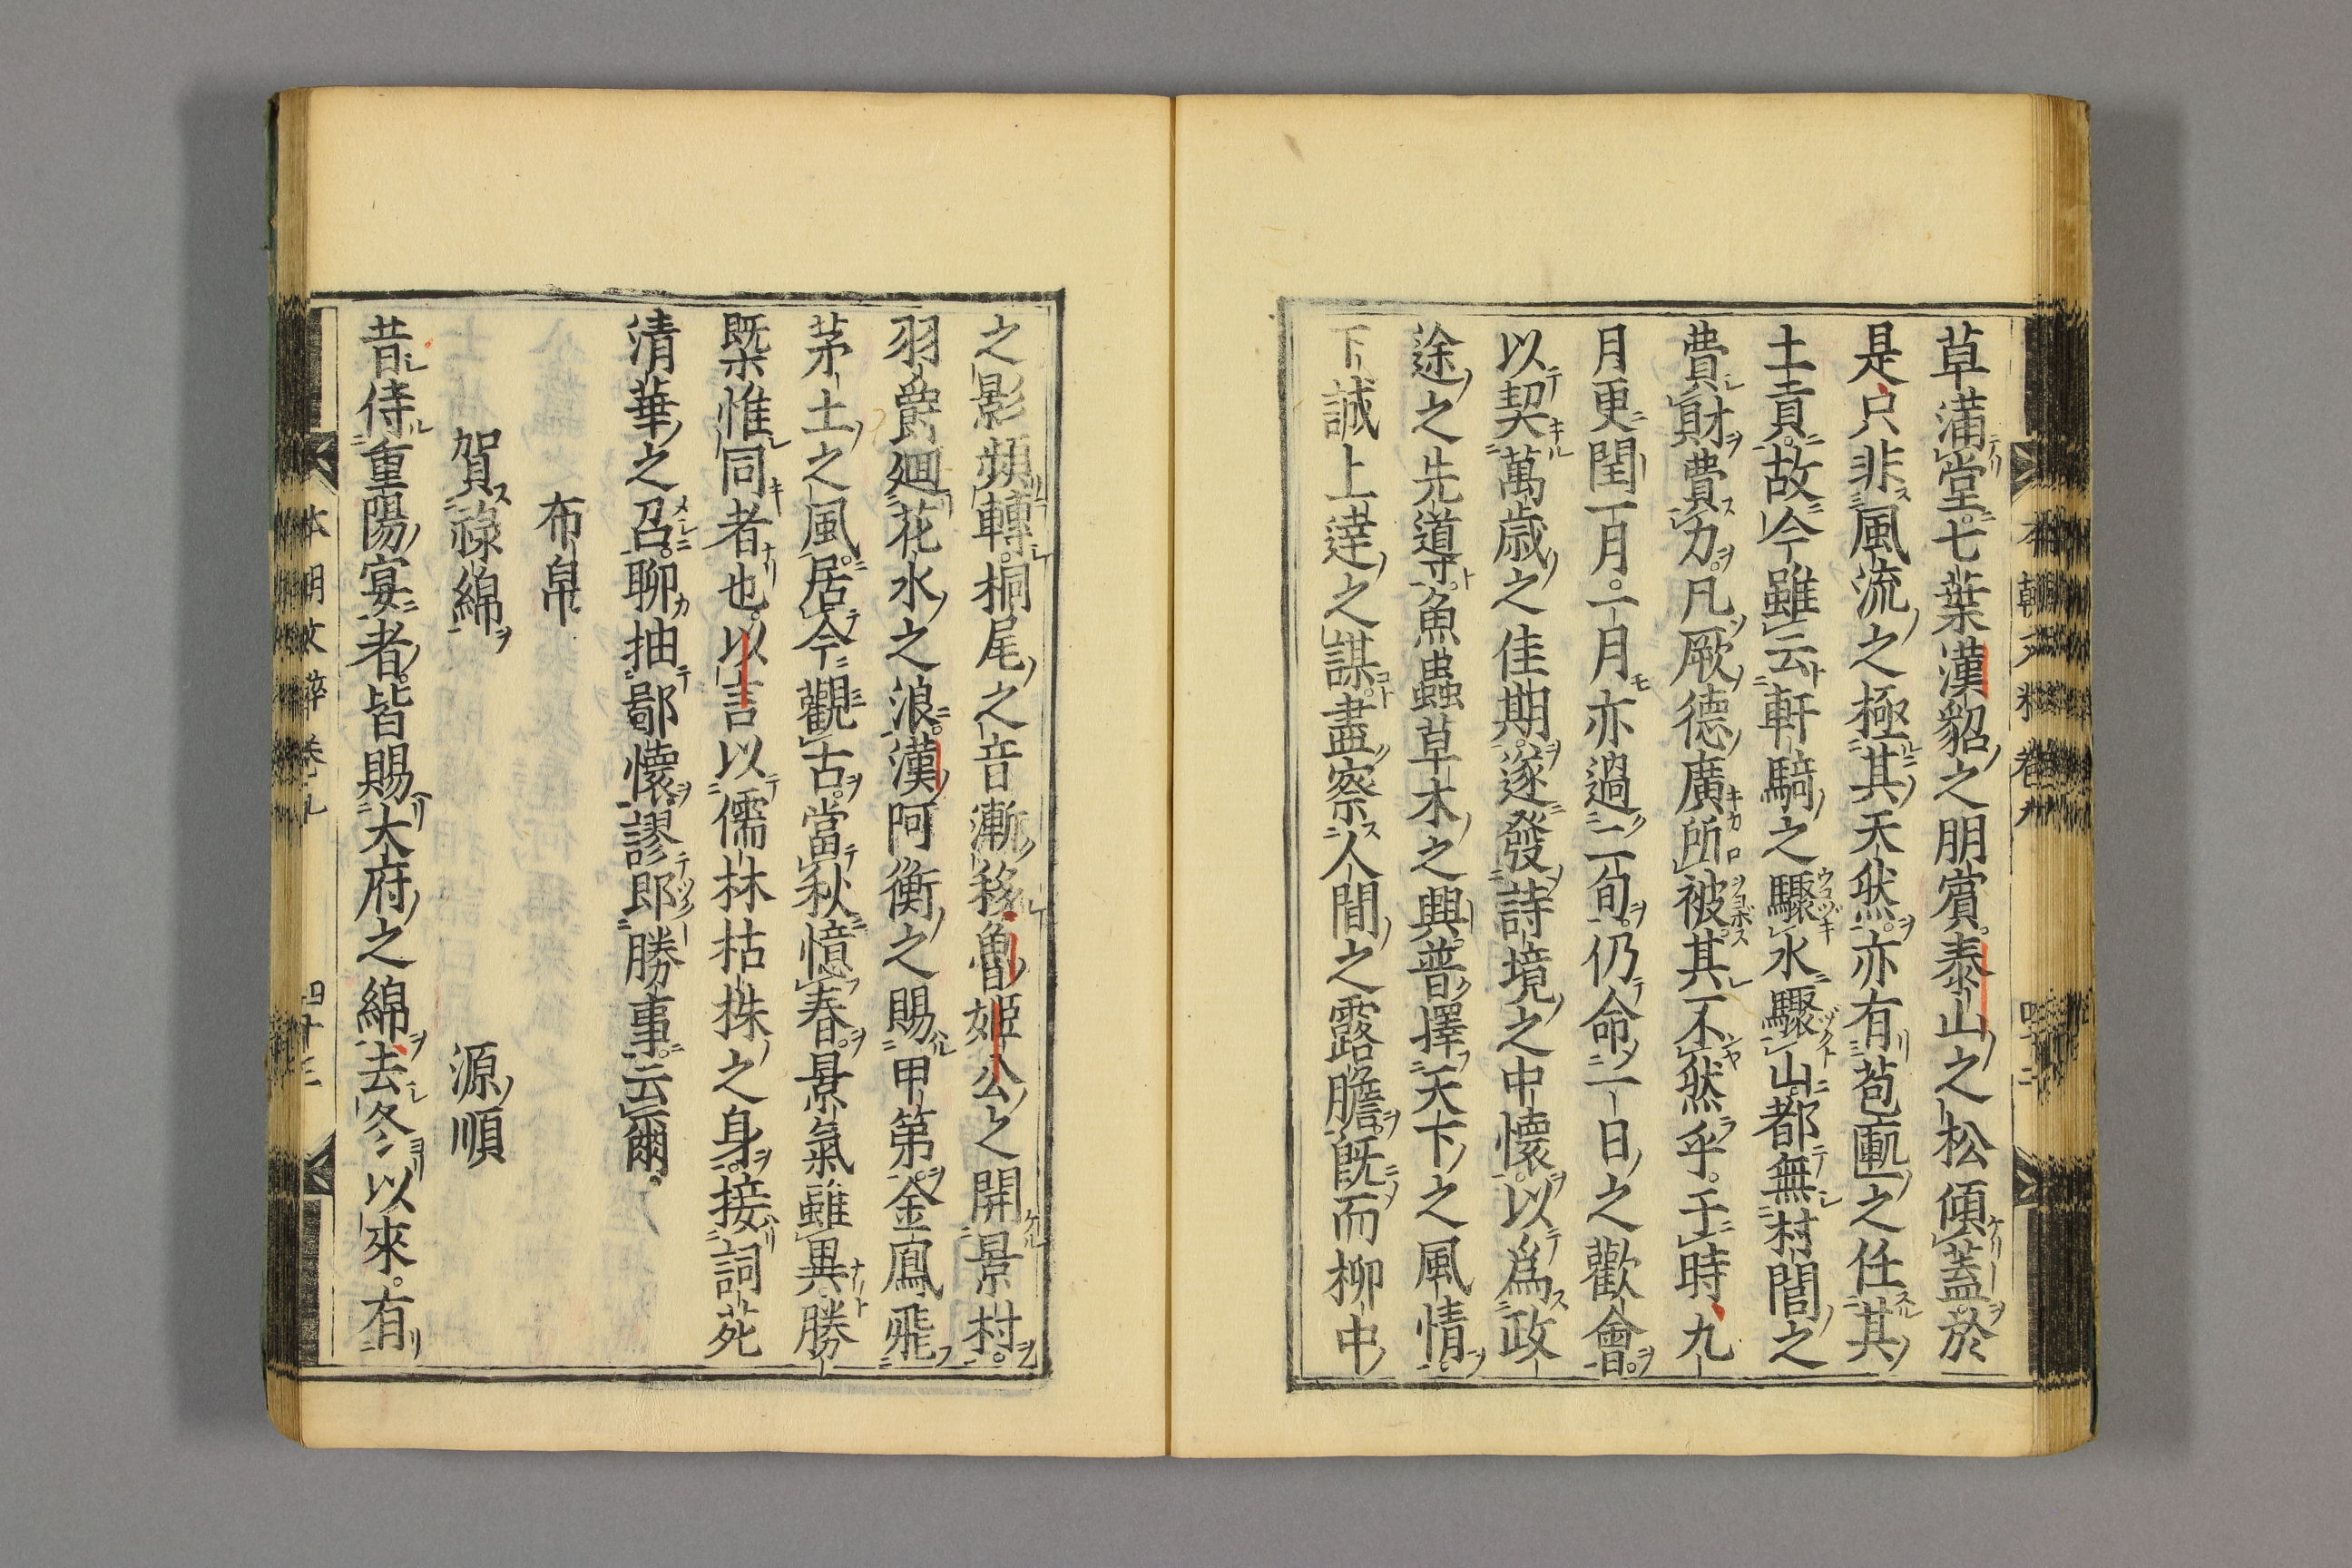 草滿堂七葉漢貂之朋賞泰山之松傾蓋於
是只非風流之極其天然亦有苞匭之任其
土貢故今雖云軒騎之驟水驟山都無村閭之
費財費力凡厥德廣所被其不然乎于時九
月更閏一月二月亦過二旬仍命一日之歡會
以契萬歳之佳期遂發詩境之中懷以爲政
途之先道尋魚蟲草木之興普擇天下之風情
下誠上達之謀盡察人間之露膽既而柳中
之影頻轉桐尾之音漸移魯姬公之開景村
羽爵廻花水之浪漢阿衡之賜甲第金鳳飛
茅土之風居今觀古當秋憶春景氣雖異勝
槩惟同者也以言以儒林枯株之身接詞苑
清華之召聊抽鄙懷謬郎勝事云爾
布帛
賀祿綿 源順
昔侍重陽宴者皆賜大府之綿去冬以來有
本朝文粹卷九 四十三